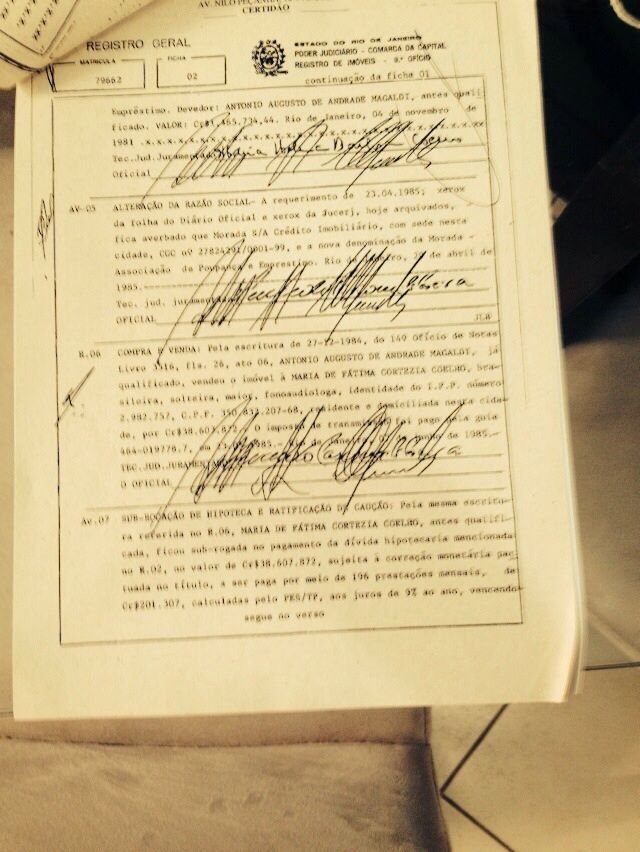 AV. NILO PEÇANHA
CERTIDÃO
REGISTRO GERAL
ESTADO DO RIO DE JANEIRO
PODER JUDICIÁRIO - COMARCA DA CAPITAL
REGISTRO DE IMÓVEIS - 9.º OFÍCIO
MATRÍCULA
79662
FICHA
02
continuação da ficha 01
Empréstimo. Devedor: ANTONIO AUGUSTO DE ANDRADE MAGALDI, antes quali
ficado. VALOR: Cr$ .465.734,44. Rio de Janeiro, 04 de novembro de
1981 .x.x.x.x.x.x.x.x.x.x.x.x.x.x.x.x.x.x.x.x.x.x.x.x.x.x.x.x.x.x.xx
Tec.Jud.Juramentado
Oficial
AV-05 ALTERAÇÃO DA RAZÃO SOCIAL- A requerimento de 23.04.1985; xerox
da folha do Diário Oficial e xerox da Jucerj, hoje arquivados,
fica averbado que Morada S/A Crédito Imobiliário, com sede nesta
cidade, CGC nº 27824291/0001-99, e a nova denominação da Morada -
Associação de Poupança e Emprestimo. Rio de Janeiro, de abril de
1985.-
Tec. jud. juramentado
OFICIAL JLW
R.06 COMPRA E VENDA: Pela escritura de 27-12-1984, do 149 Ofício de Notas
Livro 3316, fls. 26, ato 06, ANTONIO AUGUSTO DE ANDRADE MAGALDI, já
qualificado, vendeu o imóvel à MARIA DE FÁTIMA CORTEZIA COELHO, bra-
sileira, solteira, maior, fonoaudióloga, identidade do I.F.P. número
2.982.757, C.P.F. 350.832.207-68, residente e domiciliada nesta cida-
de, por Cr$38.607.872. O imposto de transmissão foi pago pela guia
464-019778.7, em 1985.- Rio de Janeiro, junho de 1985.-
TEC.JUD.JURAMENTADO
O OFICIAL
Av.07 SUB-ROGAÇÃO DE HIPOTECA E RATIFICAÇÃO DE CAUÇÃO: Pela mesma escritu-
ra referida no R.06, MARIA DE FÁTIMA CORTEZIA COELHO, antes qualifi-
cada, ficou sub-rogada no pagamento da dívida hipotecaria mencionada
no R.02, no valor de Cr$38.607.872, sujeita à correção monetária pac-
tuada no título, a ser paga por meio de 196 prestações mensais, de
Cr$201.307, calculadas pelo PES/TP, aos juros de 9% ao ano, vencendo-
segue no verso